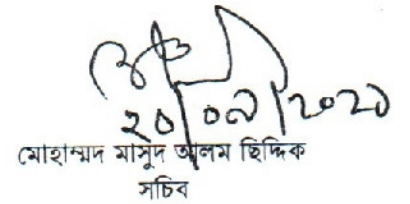 ২০/০৯/২০২১
মোহাম্মদ মাসুদ আলম ছিদ্দিক
সচিব